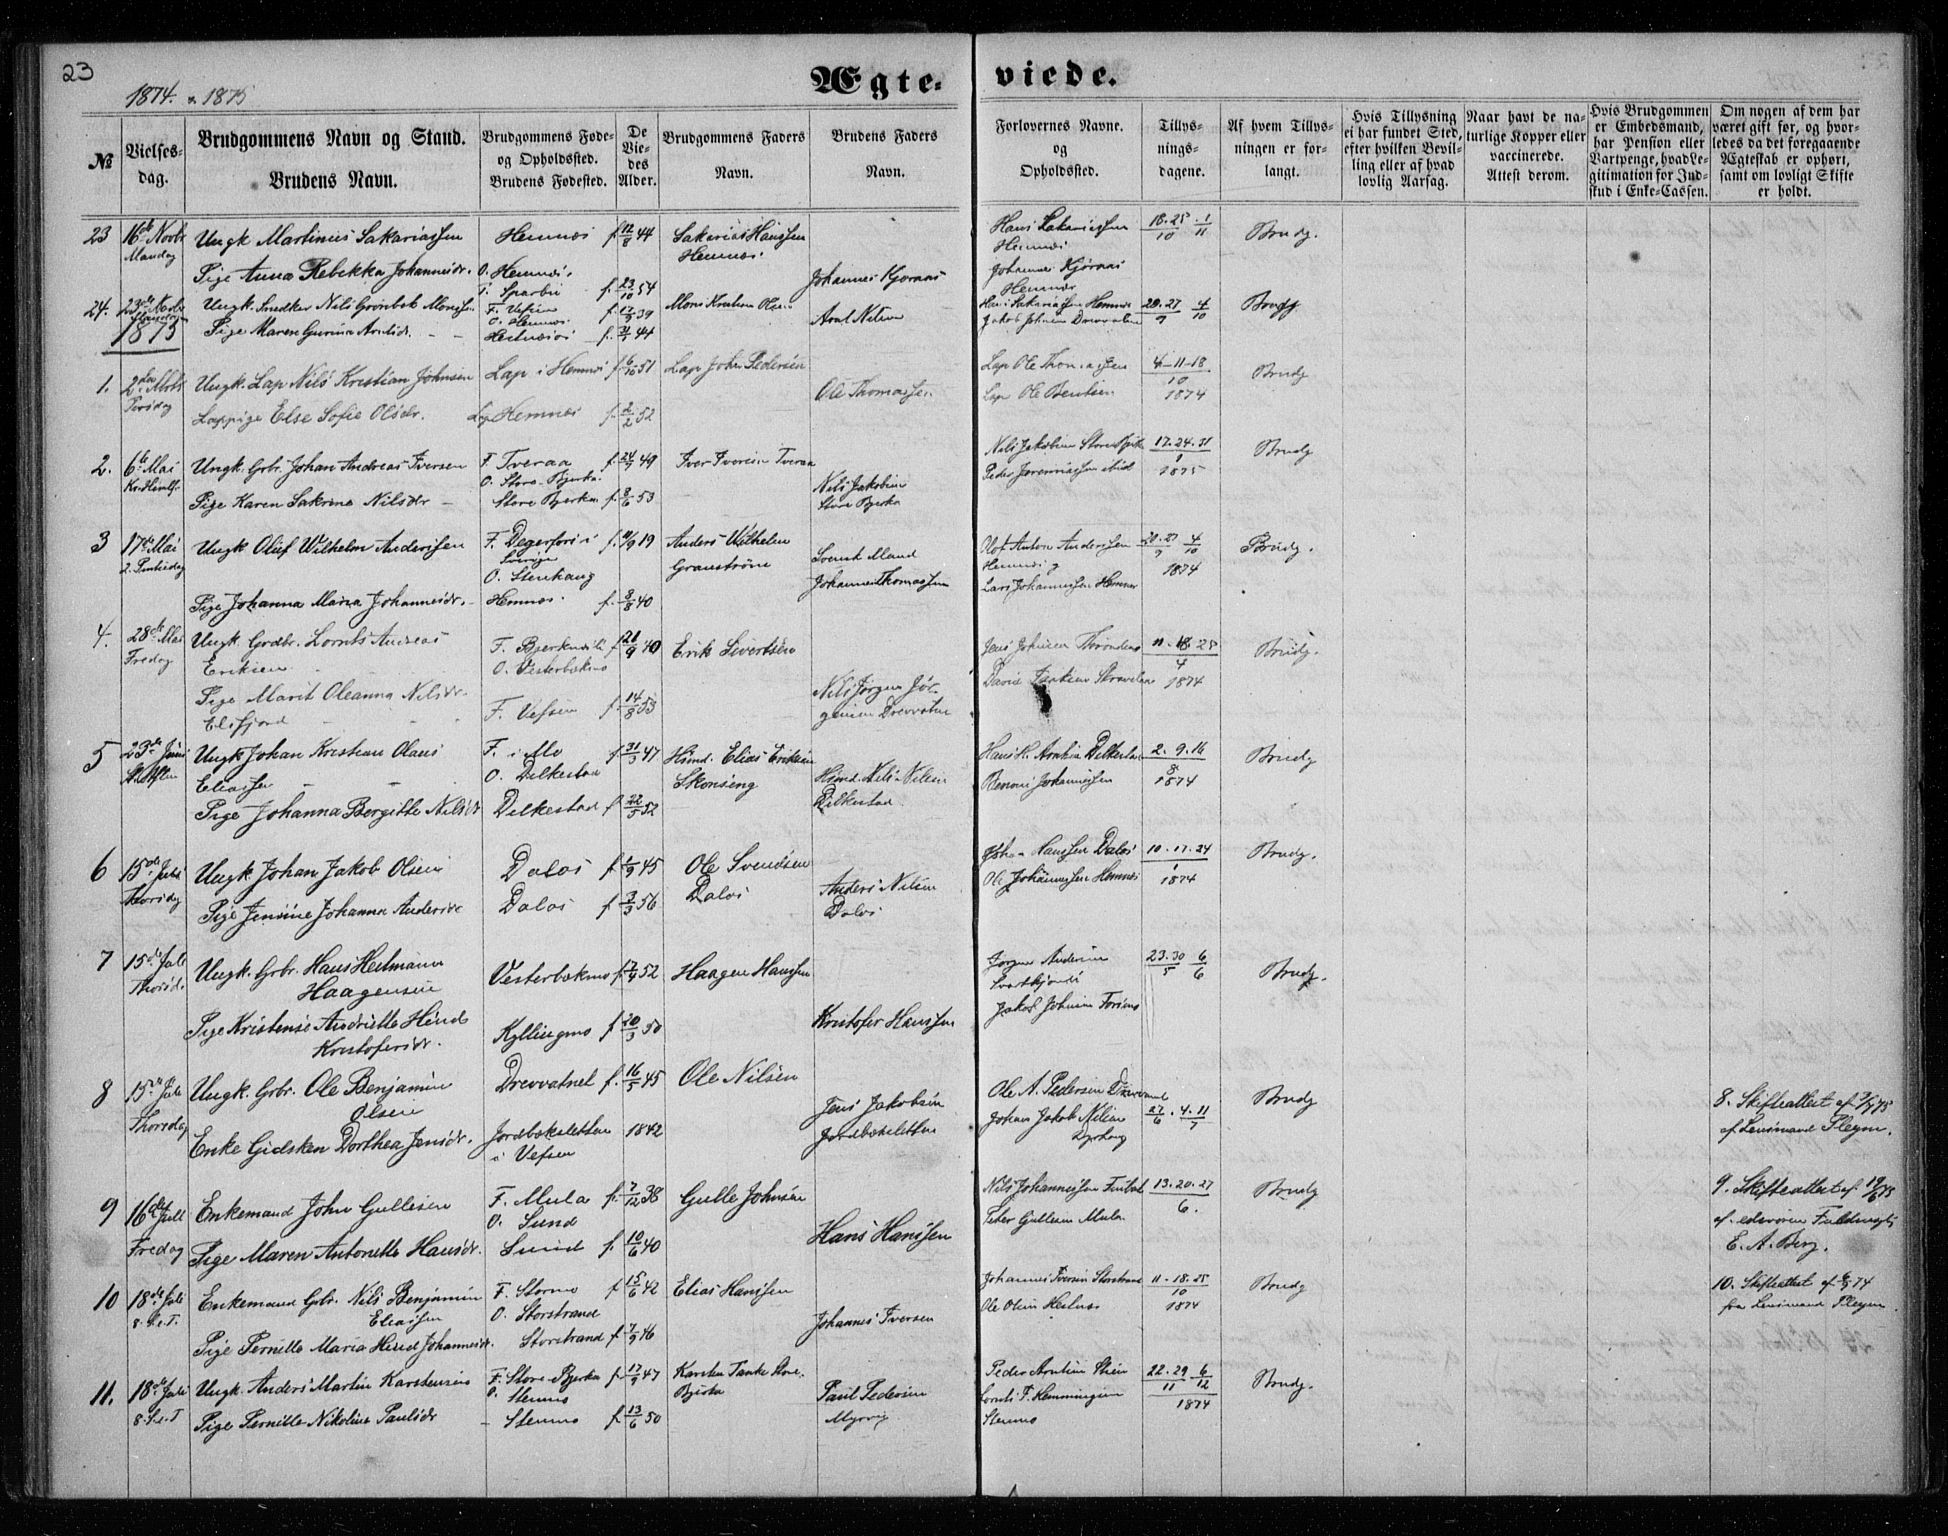 23
1874. & 1875
Ægte-
viede.
№
Vielses-
dag.
Brudgommens Navn og Stand.
Brudens Navn.
Brudgommens Føde-
og Opholdssted.
Brudens Fødested.
De
Vie-
des
Alder.
Brudgommens Faders
Navn.
Brudens Faders
Navn.
Forlovernes Navne.
og
Opholdssted.
Tillys-
nings-
dagene.
Af hvem Tillys-
ningen er for-
langt.
Hvis Tillysning
ei har fundet Sted,
efter hvilken Bevil-
ling eller af hvad
lovlig Aarsag.
Naar havt de na-
turlige Kopper eller
vaccinerede.
Attest derom.
Hvis Brudgommen
er Embedsmand,
har Pension eller
Vartpenge, hvad Le-
gitimation for Ind-
skud i Enke-Cassen.
Om nogen af dem har
været gift før, og hvor-
ledes da det foregaaende
Ægteskab er ophørt,
samt om lovligt Skifte
er holdt.
23 16de Novbr Ungk Martinus Sakariassen Hemnæs f. 12/8 44 Sakarias Hanssen Hans Sakariassen 18. 25 1/11 Brudg.
Mandag Hemnæs Hemnæs 10
Pige Anna Rebekka Johannesdr. O. Hemnæs. Johannes Kjøraas Johannes Kjøraas
F. Sparbu f. 23/10 54 Hemnæs
24. 23de Novbr Ungk. Snedker Nils Grønbek Monssen F. Vefsen f. 17/9 39 Mons Kristian Olsen Hans Sakariassen Hemnæs 20. 27 4/10 Brudg
Mandag O. Hemnæs Jakob Johnsen Drevvatne 9
1875 Pige Maren Gurina Arntsdr. f. 44 Arnt Nilsen
1. 2den Marts Ungk. Lap Nils Kristian Johnsen Lap i Hemnæs f. 6/10 51 Lap John Pedersen Lap Ole Thomassen 4-11-18 Brudg
10
Lappige Else Sofie Olsdr. Lap Hemnæs f. 2/2 52 Ole Thomassen Lap Ole Bentsen 1874
2. 6te Mai Ungk. Grbr. Johan Andreas Iversen F. Tveraa f. 24/9 49 Iver Iversen Tveraa Nils Jakobsen Store Bjerka 17. 24. 31 Brudg
Kr. Himlf. O. Store-Bjerka Peder Jeremiassen ibid 1875
Pige Karen Sakrine Nilsdr Store Bjerka f. 8/6 53 Nils Jakobsen
Store Bjerka
3 17de Mai Ungk Oluf Wilhelm Anderssen F. Degerfors i f. 9 19 Anders Wilhelm Olof Anton Anderssen 20. 27 4/10 Brudg.
2. Pintsedag Sverige Granstrøm Svensk Mand Hemnæs 9
O. Stenhaug Johannes Thomassen Lars Johannessen Hemnæs 1874
Pige Johanna Maria Johannesdr. Hemnæs. f. 8/8 40
4. 28de Mai Ungk. Grdbr. Lornts Andreas F. f. 21/9 40 Erik Sivertsen Jens Johnsen 11. 18. 25 Brudg.
Fredag Eriksen O. Vesterbækmo 4
Pige Marit Oleanna Nilsdr. F. Vefsen f. 14/8 53 Nils Jørgen Jør- David 1874
Elsfjord gensen Drevvatne
5 23de Juni Ungk Johan Kristian Olaus F. i Mo f. 31/3 47 Hsmd. Elias Eriksen Hans H. 2. 9. 16 Brudg
St. Hftn Eliassen O. Dilkestad Skonseng Hsmd. Nils Nilsen Benoni Johannessen 8
Pige Johanna Bergitte Nilsdr Dilkestad f. 22/5 52 Dilkestad 1874
6 15de Juli Ungk Johan Jakob Olsen Dalos f. 1/9 45 Ole Svendsen Johan Hanssen Dalos 10. 17. 24 Brudg.
Thorsdag Dalos Anders Nilsen Ole Johannessen Hemnæs 1874
Pige Jensine Johanna Andersdr Dalos f. 3/3 56 Dalos
7 15de Juli Ungk. Grbr. Hans Heitmann Vesterbækmo f. 17/4 52 Haagen Hanssen Jørgen Andersen 23. 30 6/6 Brudg.
Thorsd. Haagensen 5
Jakob Johnsen
Pige Kristense Andriette Hind Kyllingmo f 20/3 50 Kristofer Hanssen
Kristofersdr.
8 15de Juli Ungk. Grbr. Ole Benjamin Drevvatnet f. 16/5 45 Ole Nilsen Ole A. Pedersen Drevvatne Brudg 8. Skifteattest af 3/7 75
Thorsdag Olsen Jens Jakobsen Johan Jakob Nilsen 27/6. 4. 11/7 af Lensmand Pleym.
Enke Gidsken Dorthea Jensdr. Jordbæksletten 1842 Jordbækslettene
i Vefsen
9 16de Juli Enkemand John Gullesen F. Mula f. 7/12 38 Gulle Johnsen Nils Johannessen 13. 20. 27 Brudg 9. Skifteattest af 19/6 75
Fredag O. Sund Peter Gullesen Mula 6. af edsvoren Fuldmægtig
Pige Maren Antonette Hansdr. Sund f. 10/6 40 Hans Hanssen E. A. Berg.
10 18de Juli Enkemand Grbr. Nils Benjamin F. Stormo f 15/6 42 Elias Hanssen Johannes Iversen Storstrand 11. 18. 25 Brudg 10. Skifteattest af 74
8. S. e. T. Eliassen O. Storstrand Ole Olsen 10 fra Lensmand Pleym.
Pige Pernille Maria Hind Johannesdr. Storstrand f. 7/9 46 Johannes Iversen 1874
11. 18de Juli Ungk. Anders Martin Karstensen F. Store-Bjerka f 17/9 47 Karsten Tanke Store- Peder Arntsen 22. 29 6/12 Brudg.
8 S. e. T O. Stenmo Bjerka Paul Pedersen Lornts F. Hemmingsen 11
Pige Pernille Nikoline Paulsdr Stenmo f. 13/6 50 Myrvig Stenmo 1874